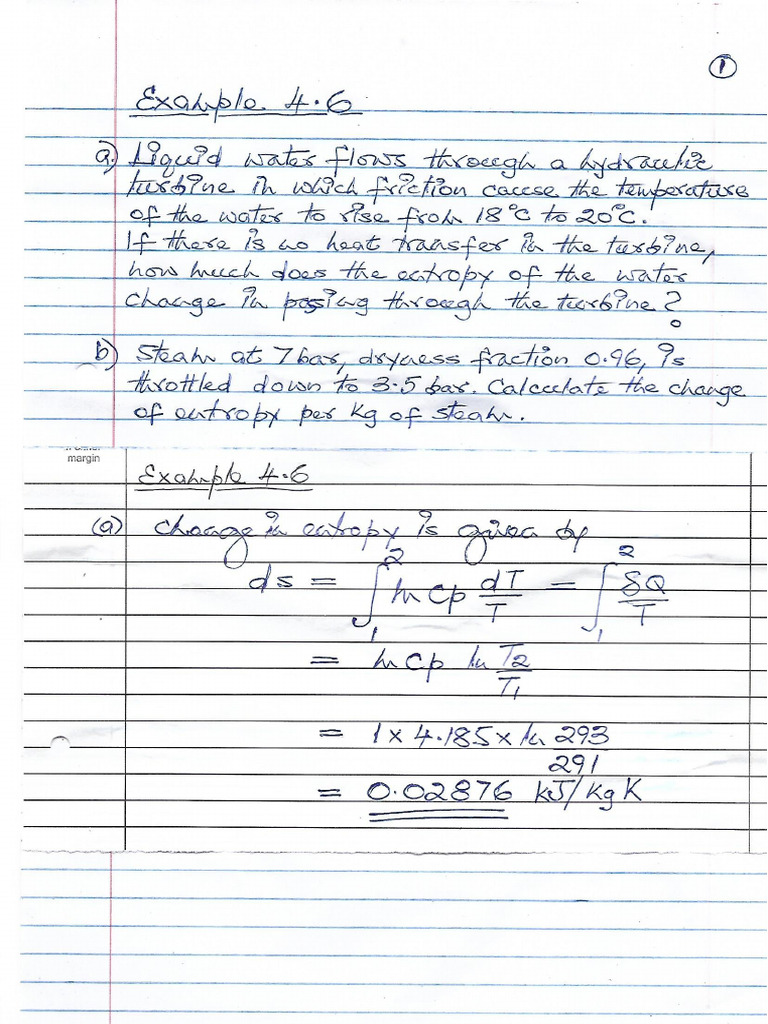 ①
Example 4.6
a) Liquid water flows through a hydraulic
turbine in which friction cause the temperature
of the water to rise from 18°C to 20°C.
If there is no heat transfer in the turbine,
how much does the entropy of the water
change in passing through the turbine?
b) Steam at 7 bar, dryness fraction 0.96, is
throttled down to 3.5 bar. Calculate the change
of entropy per kg of steam.
margin
Example 4.6
(a) Change in entropy is given by
ds = ∫₁² m Cp dT/T = ∫₁² δQ/T
= m Cp ln T₂/T₁
= 1 × 4.185 × ln 293/291
= 0.02876 kJ/kg K